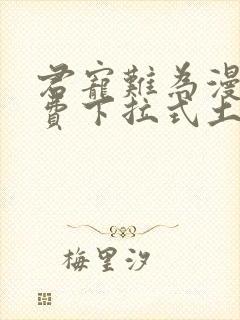 君寵難為漫
費下拉式土
梅里汐